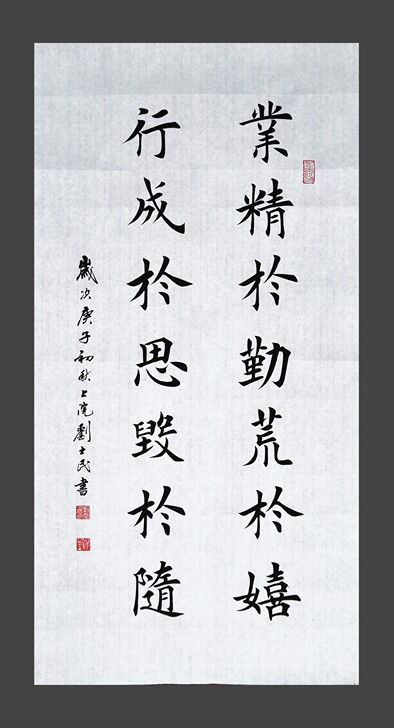 業精於勤荒於嬉
行成於思毀於隨
歲次庚子初秋上浣劉士民書